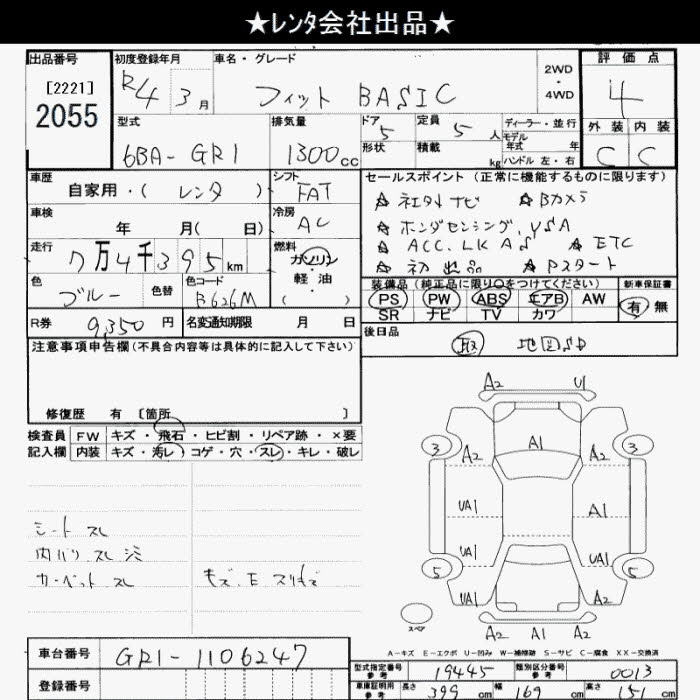 ★レンタ会社出品★
出品番号 [2221] 2055
初度登録年月 R4 3月
車名・グレード フィット BASIC
2WD・4WD
評価点 4
外装 内装
C C
型式 6BA-GR1
排気量 1300cc
ドア 5 形状
定員 5人 積載 kg
ディーラー・並行
モデル年式 年
ハンドル 左・右
車歴 自家用・( レンタ )
シフト FAT
車検 年 月( 日)
冷房 AC
走行 7万4千395km
燃料 ガソリン・軽油・( )
色 ブルー 色替
色コード B626M
R券 9,350円
名変通知期限 月 日
セールスポイント(正常に機能するものに限ります)
☆ 社外ナビ ☆ Bカメラ
☆ ホンダセンシング、VSA
☆ ACC、LKAS ☆ ETC
☆ 初出品 ☆ Pスタート
装備品(純正品に限り○をつけてください)
新車保証書
PS PW ABS エアB AW
SR ナビ TV カワ
有 無
後日品
取 地図SD
注意事項申告欄(不具合内容等は具体的に記入して下さい)
修復歴 有 [箇所 ]
検査員記入欄
FW キズ・飛石・ヒビ割・リペア跡・×要
内装 キズ・汚レ・コゲ・穴・スレ・キレ・破レ
シート スレ
内ハリ スレ シミ
カーペット スレ
キズ、E スリキズ
A2 U1
3 A2 A1 A2 3
UA1 A1
UA1 UA1
5 5
UA1 A2
A2 A1 A2
スペア
A-キズ E-エクボ U-凹み W-補修跡 S-サビ C-腐食 XX-交換済
車台番号 GR1-1106247
登録番号
型式指定番号 参考 19445
類別区分番号 参考 0013
車庫証明用 参考 長さ 399cm 幅 169cm 高さ 151cm